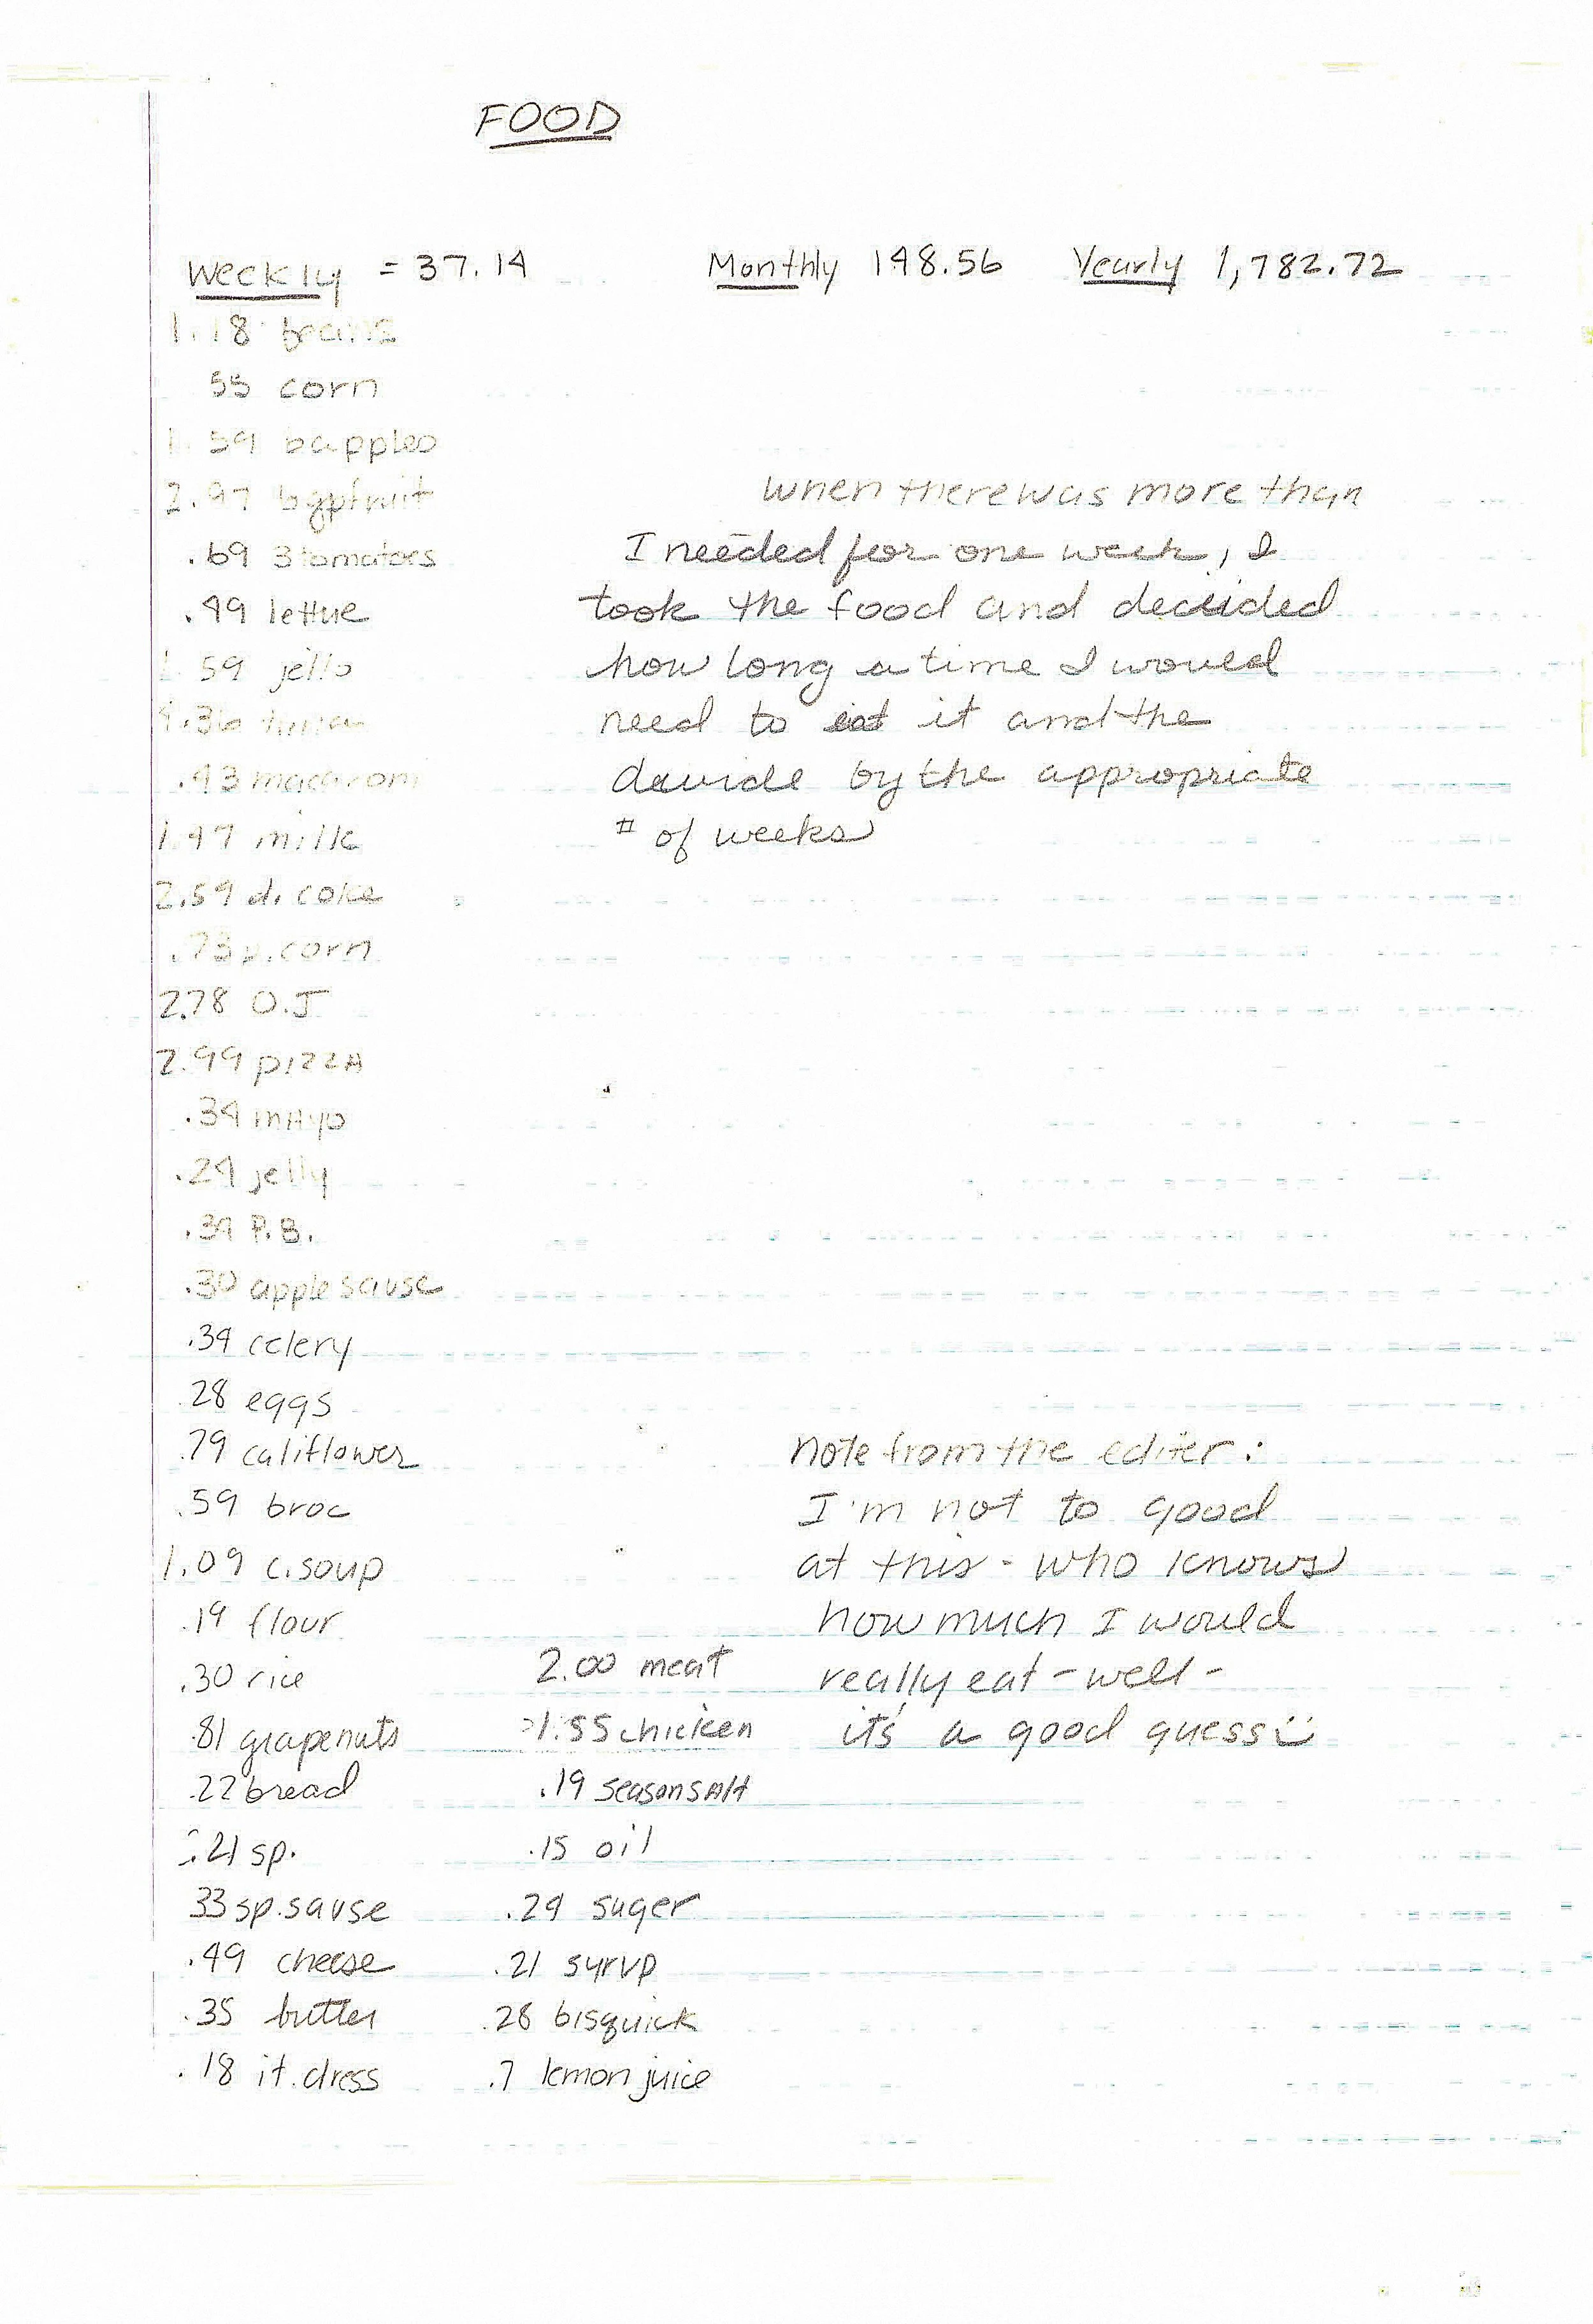 FOOD
Weekly = 37.14 Monthly 148.56 Yearly 1,782.72
1.18 beans
55 corn
1.59 bapples
2.97 bgpfruit
.69 3 tomatoes
.49 lettue
59 jello
.36
.43 macaroni
1.47 milk
2.59 d. coke
.73 p.corn
2.78 O.J
2.99 pizzA
.34 mAyo
.24 jelly
.34 P.B.
.30 apple sause
.34 celery
.28 eggs
.79 califlower
.59 broc
1.09 c.soup
.19 flour
.30 rice
.81 grapenuts
.22 bread
.21 sp.
33 sp.sause
.49 cheese
.35 butter
.18 it.dress
2.00 meat
1.55 chicken
.19 seasonsAlt
.15 oil
.24 suger
.21 syrup
.28 bisquick
.7 lemon juice
when there was more than
I needed for one week, I
took the food and decided
how long a time I would
need to eat it and the
devide by the appropriate
# of weeks
note from the editer:
I'm not to good
at this - who knows
how much I would
really eat - well -
it's a good guess